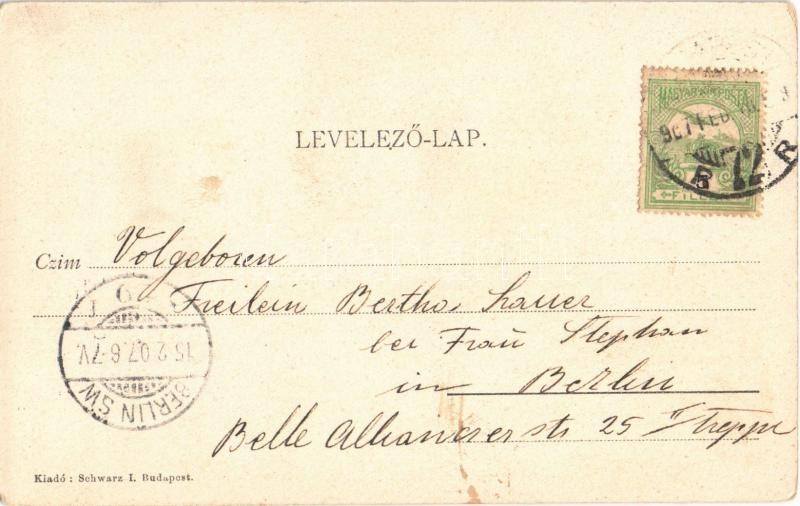 MAGYAR KIR. POSTA
907 FEB
72
FILLÉR
LEVELEZŐ-LAP.
Czim Volgeboren
Freilein Bertha Lauer
bei Frau Stephan
in Berlin
Belle Alliancserstr 25 I Treppe
BERLIN SW
15.2.07.6-7V.
Kiadó : Schwarz I. Budapest.